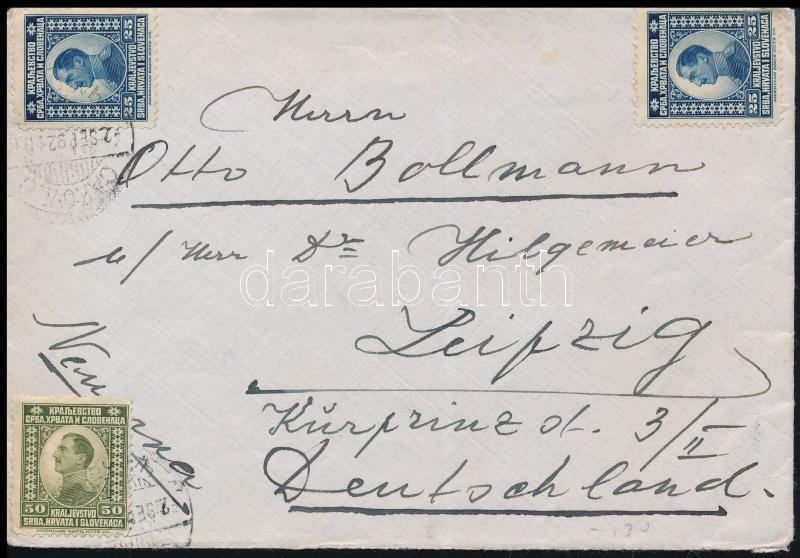 КРАЉЕВСТВО
СРБА, ХРВАТА И СЛОВЕНАЦА
25 25
KRALJEVSTVO
SRBA, HRVATA I SLOVENACA
КРАЉЕВСТВО
СРБА, ХРВАТА И СЛОВЕНАЦА
25 25
KRALJEVSTVO
SRBA, HRVATA I SLOVENACA
2. SEP. 921
Herrn
Otto Bollmann
Herr Dr Hilgemeier
darabanth
Leipzig
Kurprinz st. 3/II
Deutschland.
КРАЉЕВСТВО
СРБА, ХРВАТА И СЛОВЕНАЦА
50 50
KRALJEVSTVO
SRBA, HRVATA I SLOVENACA
AMERICAN BANK NOTE CO.
2. SEP